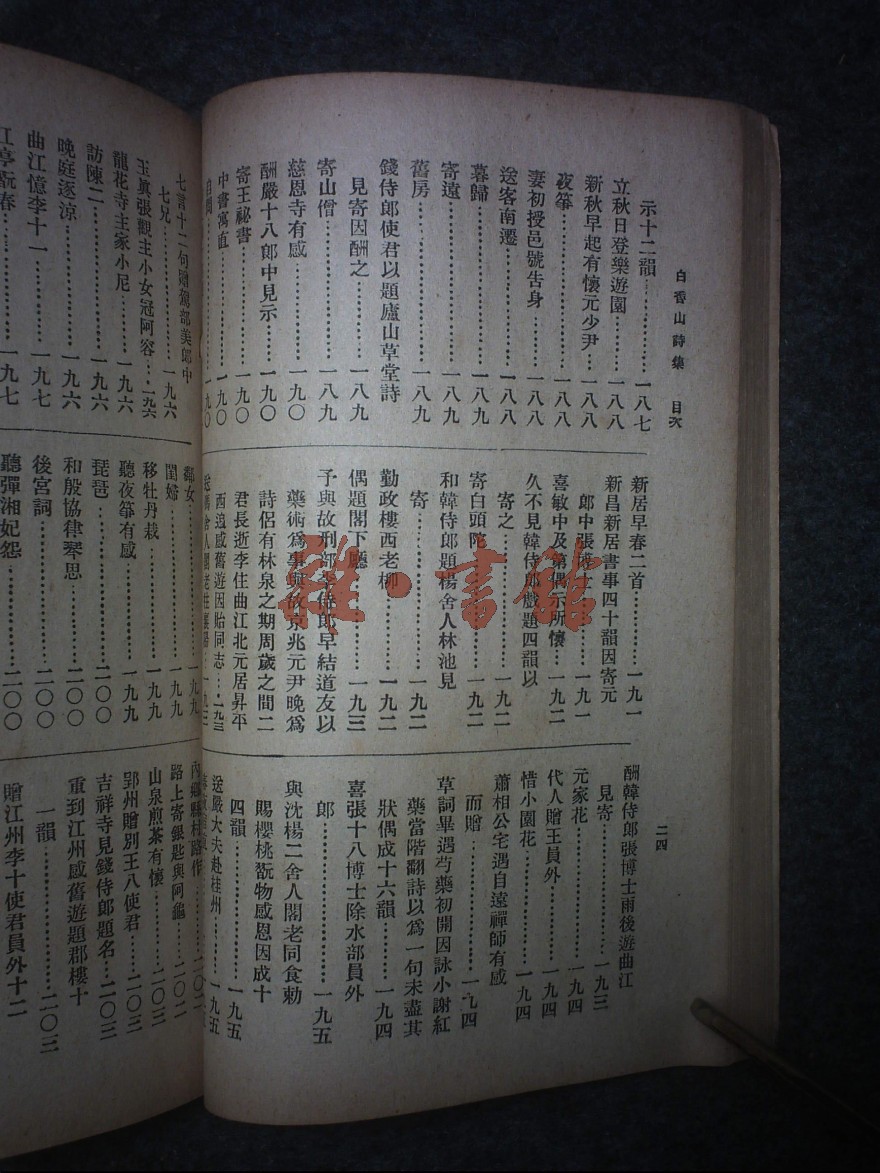 白香山詩集　目次
二四
示十二韻……一八七
立秋日登樂遊園……一八八
新秋早起有懷元少尹……一八八
夜箏……一八八
妻初授邑號告身……一八八
送客南遷……一八八
暮歸……一八九
寄遠……一八九
舊房……一八九
錢侍郎使君以題廬山草堂詩
見寄因酬之……一八九
寄山僧……一八九
慈恩寺有感……一九〇
酬嚴十八郎中見示……一九〇
寄王祕書……一九〇
中書寓直……一九〇
自問……一九〇
新居早春二首……一九一
新昌新居書事四十韻因寄元
郎中張博士……一九一
喜敏中及第偶示所懷……一九二
久不見韓侍郎戲題四韻以
寄之……一九二
寄白頭陀……一九二
和韓侍郎題楊舍人林池見
寄……一九二
勤政樓西老柳……一九二
偶題閣下廳……一九三
予與故刑部李侍郎早結道友以
藥術為事與故京兆元尹晚為
詩侶有林泉之期周歲之間二
君長逝李住曲江北元居昇平
西追感舊遊因貽同志……一九三
酬韓侍郎張博士雨後遊曲江
見寄……一九三
元家花……一九四
代人贈王員外……一九四
惜小園花……一九四
蕭相公宅遇自遠禪師有感
而贈……一九四
草詞畢遇芍藥初開因詠小謝紅
藥當階翻詩以為一句未盡其
狀偶成十六韻……一九四
喜張十八博士除水部員外
郎……一九五
與沈楊二舍人閣老同食勅
賜櫻桃翫物感恩因成十
四韻……一九五
送嚴大夫赴桂州……一九五
七言十二句贈駕部吳郎中
七兄……一九六
玉真張觀主小女冠阿容……一九六
龍花寺主家小尼……一九六
訪陳二……一九六
晚庭逐涼……一九六
曲江憶李十一……一九七
江亭翫春……一九七
鄰女……一九九
閨婦……一九九
移牡丹栽……一九九
聽夜箏有感……一九九
琵琶……二〇〇
和殷協律琴思……二〇〇
後宮詞……二〇〇
聽彈湘妃怨……二〇〇
內鄉縣村路作……二〇二
路上寄銀匙與阿龜……二〇二
山泉煎茶有懷……二〇三
郢州贈別王八使君……二〇三
吉祥寺見錢侍郎題名……二〇三
重到江州感舊遊題郡樓十
一韻……二〇三
贈江州李十使君員外十二
雜·書館